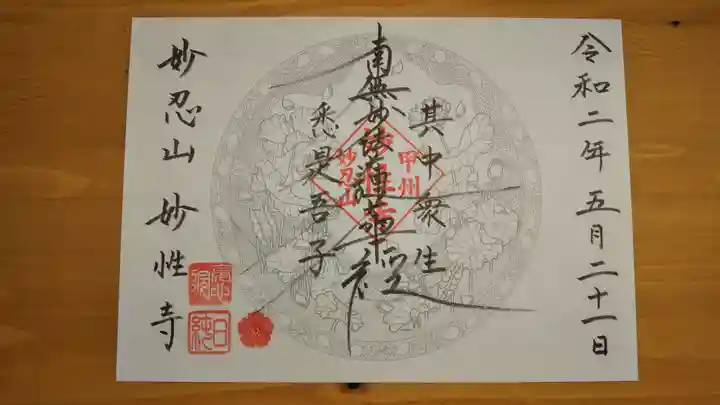 令和二年五月二十一日
其中衆生
南無妙法蓮華経
悉是吾子
甲州
妙性寺
妙忍山
妙忍山 妙性寺